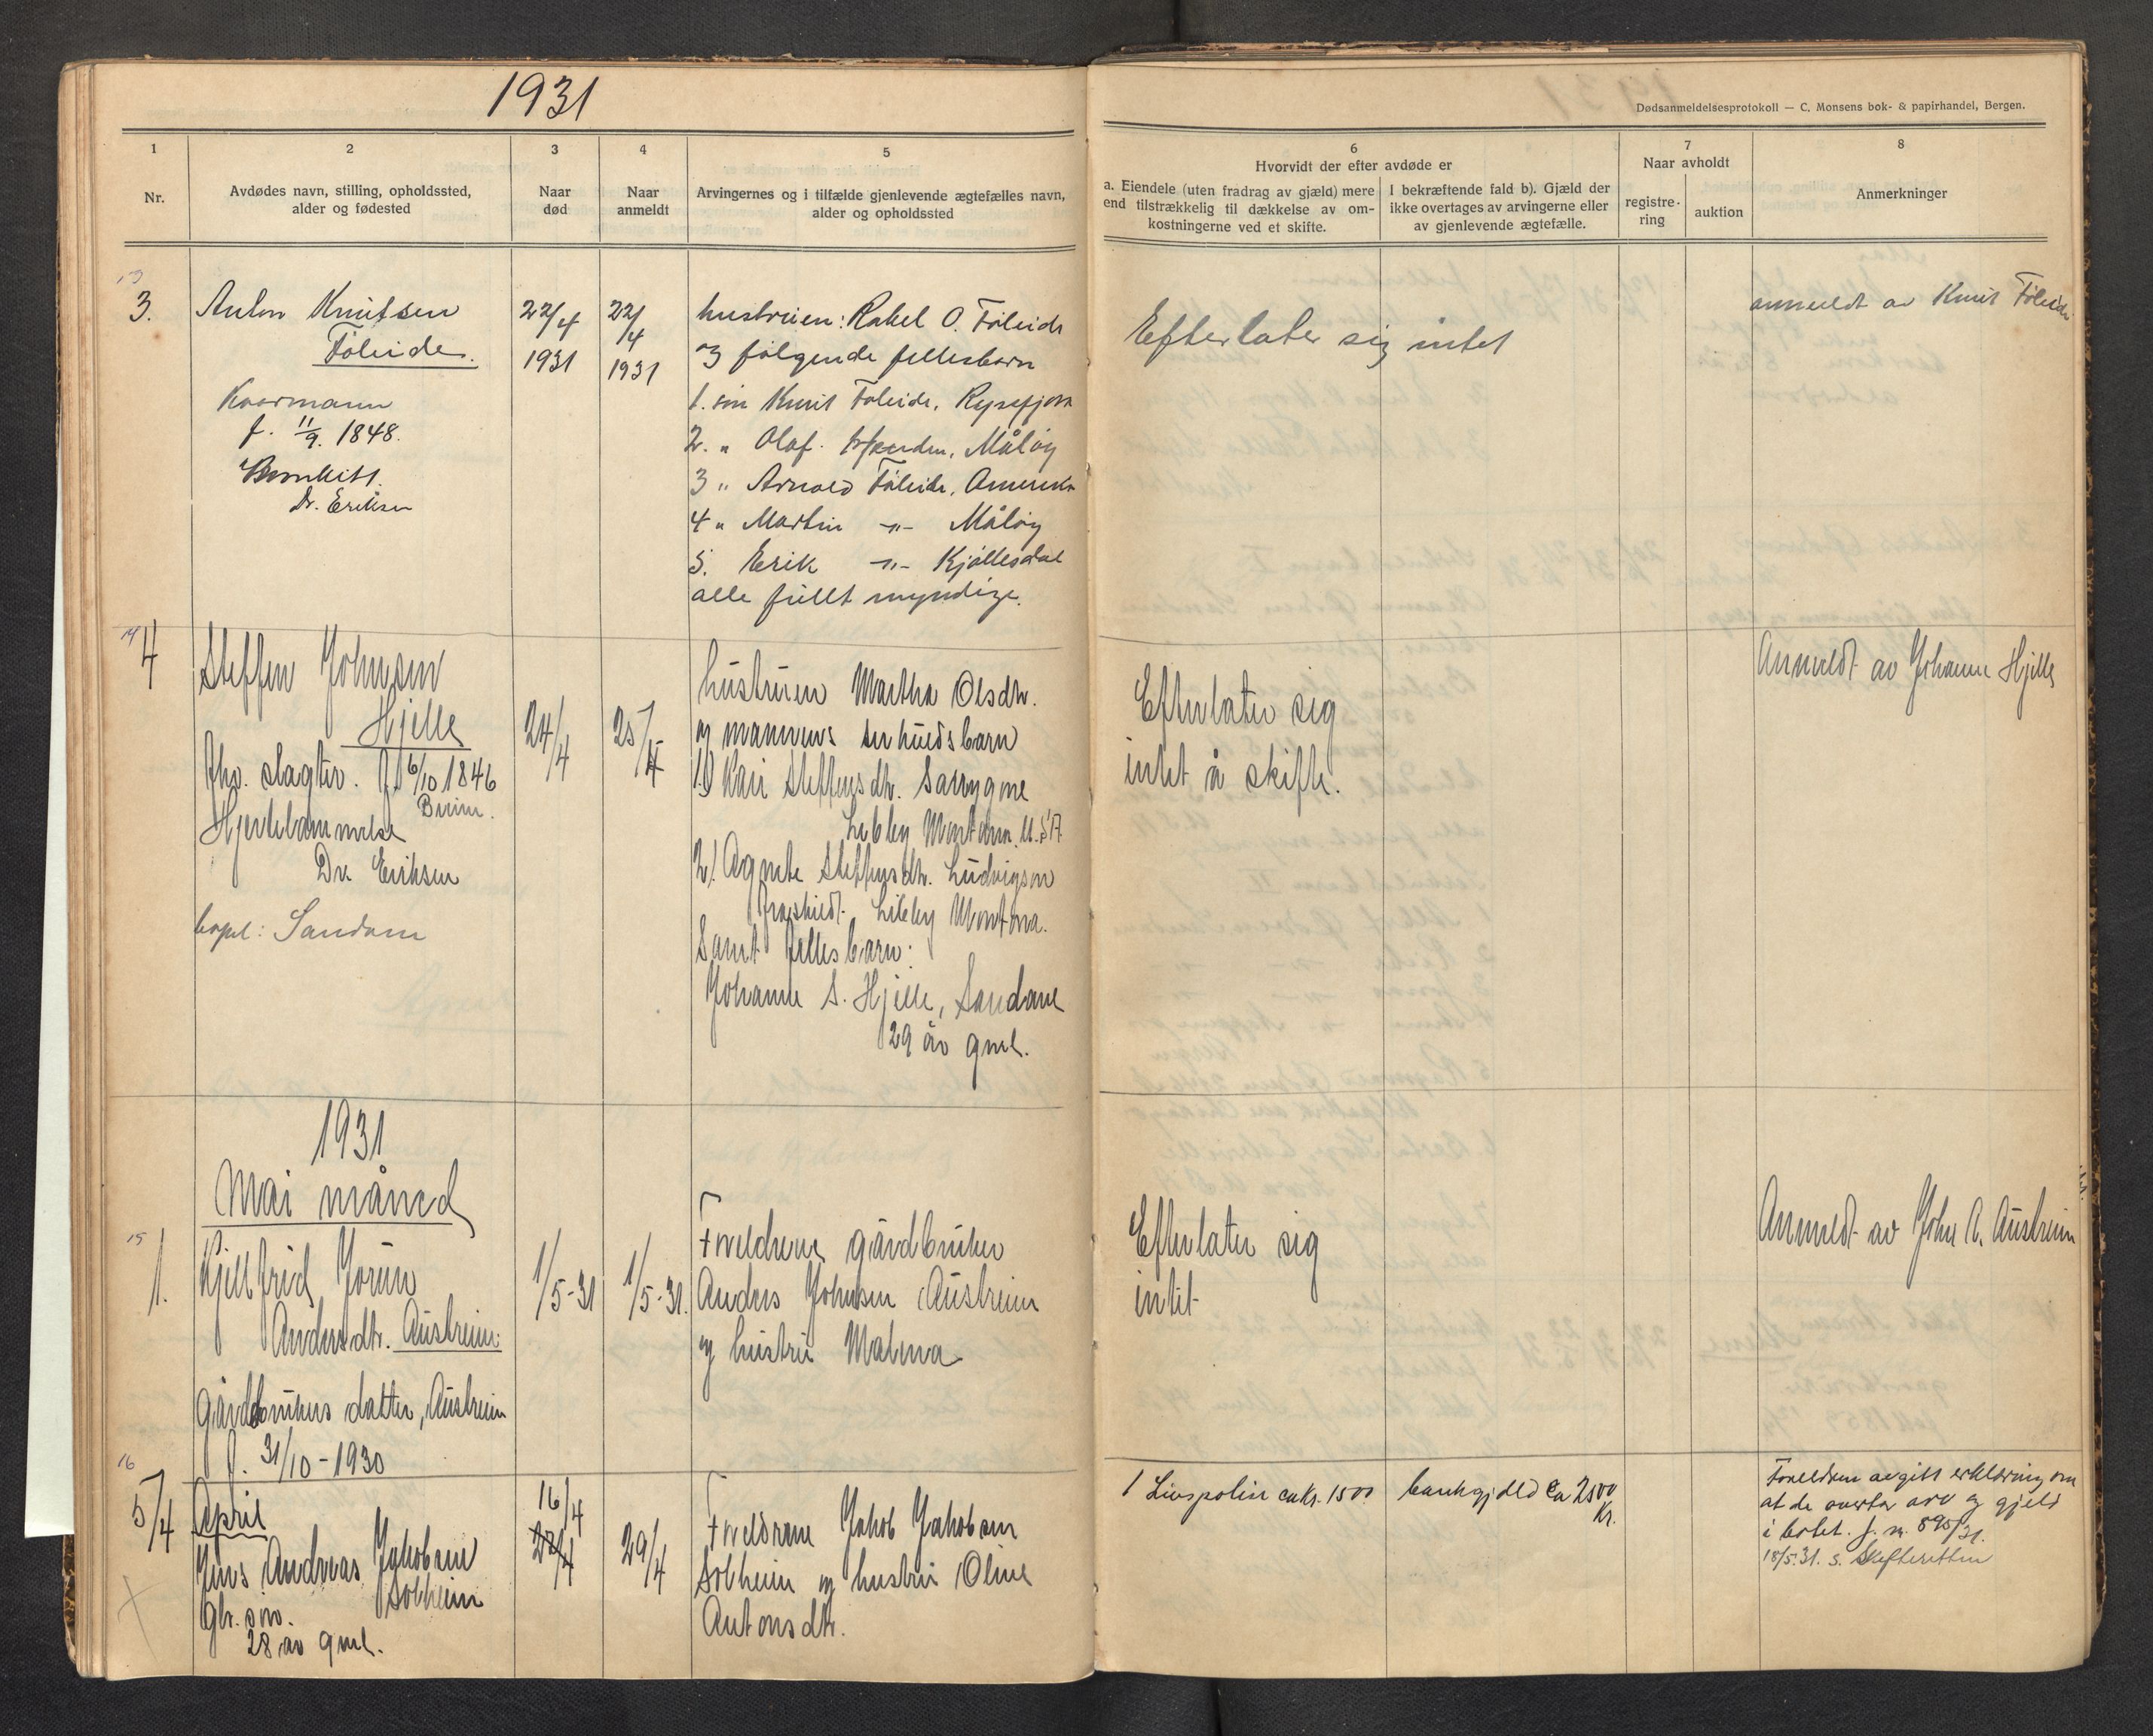 1931
Dødsanmeldelsesprotokoll — C. Monsens bok- & papirhandel, Bergen.
1
Nr.
2
Avdødes navn, stilling, opholdssted,
alder og fødested
3
Naar
død
4
Naar
anmeldt
5
Arvingernes og i tilfælde gjenlevende ægtefælles navn,
alder og opholdssted
6
Hvorvidt der efter avdøde er
a. Eiendele (uten fradrag av gjæld) mere
end tilstrækkelig til dækkelse av om-
kostningerne ved et skifte.
I bekræftende fald b). Gjæld der
ikke overtages av arvingerne eller
av gjenlevende ægtefælle.
7
Naar avholdt
registre-
ring
auktion
8
Anmerkninger
13
3.
Anton Knutsen
Føleide.
Kaarmann
f. 11/9. 1848.
Bronkitt.
Dr. Eriksen
22/4
1931
22/4
1931
hustruen: Rakel O. Føleide
og følgende fellesbarn
1. søn Knut Føleide, Rysefjøra
2. " Olaf , Måløy
3 " Arnold Føleide, Amerika
4 " Martin -"- Måløy
5. Erik -"- Kjøllesdal
alle fullt myndige.
Efterlater sig intet
anmeldt av Knut Føleide
14
4
Steffen Johnsen
Hjelle
fhv. slagter. f. 6/10 1846
Breim.
Hjertelammelse
Dr. Eriksen
bopel: Sandane
24/4
25/4
hustruen Martha Olsdtr.
og mannens særkuldsbarn
1) Kari Steffensdtr.
Libby Montana. U.S.A.
2). Agnete Steffensdtr. Ludvigson
fraskilt. Libby Montana.
Samt fellesbarn:
Johanne S. Hjelle, Sandane
29 år gml.
Efterlater sig
intet å skifte.
Anmeldt av Johanne Hjelle
1931
Mai måned
15
1.
Kjellfrid Jorun
Andersdtr. Austreim.
gårdbrukers datter, Austreim
f. 31/10 - 1930
1/5-31
1/5-31.
Foreldrene gårdbruker
Anders Johnsen Austreim
og hustru Malena
Efterlater sig
intet
Anmeldt av John A. Austreim
16
5/4
April
Jens Andreas Jakobsen
Solheim
gbr. søn.
28 år gml.
16/4
22/4
29/4
Foreldrene Jakob Jakobsen
Solheim og hustru Oline
Antonsdtr.
1 Livspolise ca kr. 1500
bankgjeld ca 2500
Kr.
Foreldrene avgitt erklæring om
at de overtar arv og gjeld
i boet. J. nr. 895/31.
18/5.31. s. Skifteretten